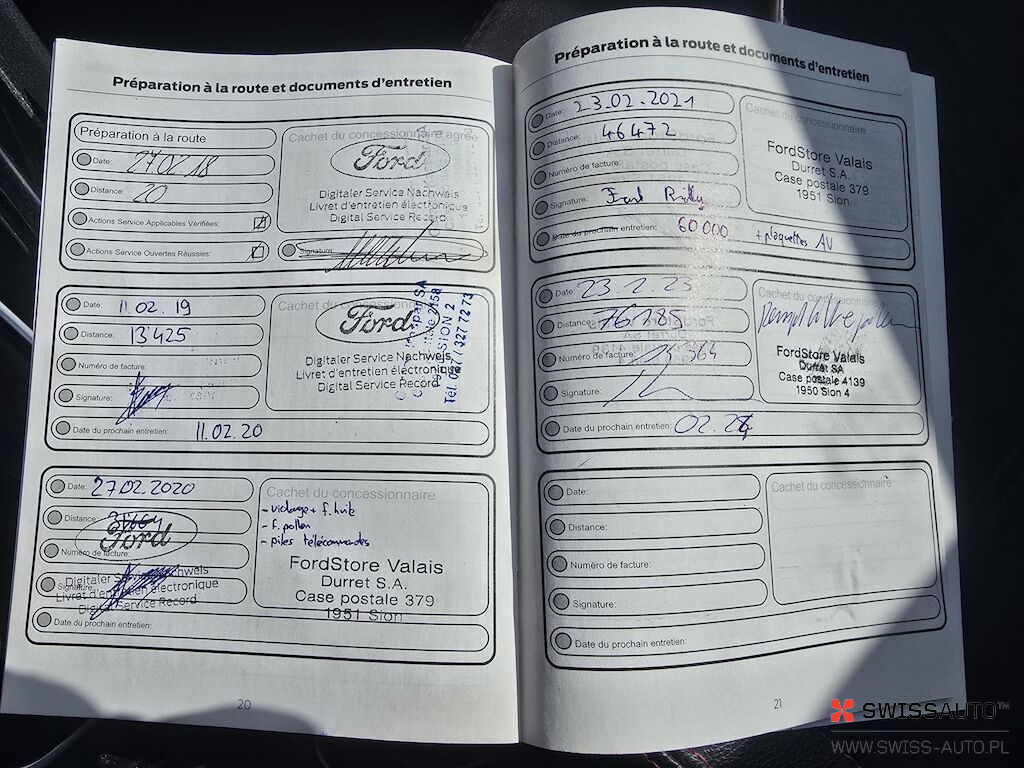 Préparation à la route et documents d'entretien
Préparation à la route
Date: 27.02.18
Distance: 20
Actions Service Applicables Vérifiées:
Actions Service Ouvertes Réussies:
Cachet du concessionnaire agréé
Ford
Digitaler Service Nachweis
Livret d'entretien électronique
Digital Service Record
Signature:
Date: 11.02.19
Distance: 13425
Numéro de facture:
Signature:
Date du prochain entretien: 11.02.20
Cachet du concessionnaire
Ford
Digitaler Service Nachweis
Livret d'entretien électronique
Digital Service Record
Tél. 027 / 327 72 73
Date: 27.02.2020
Distance:
Ford
Numéro de facture:
Signature:
Digitaler Service Nachweis
Livret d'entretien électronique
Digital Service Record
Date du prochain entretien:
Cachet du concessionnaire
- vidange + f. huile
- f. pollen
- piles télécommandes
FordStore Valais
Durret S.A.
Case postale 379
1951 Sion
20
Préparation à la route et documents d'entretien
Date: 23.02.2021
Distance: 46472
Numéro de facture:
Signature:
Date du prochain entretien: 60000 + plaquettes AV
Cachet du concessionnaire
FordStore Valais
Durret S.A.
Case postale 379
1951 Sion
Date: 23.2.23
Distance: 76785
Numéro de facture:
Signature:
Date du prochain entretien: 02.24
FordStore Valais
Durret SA
Case postale 4139
1950 Sion 4
Date:
Distance:
Numéro de facture:
Signature:
Date du prochain entretien:
Cachet du concessionnaire
21
SWISSAUTO™
WWW.SWISS-AUTO.PL